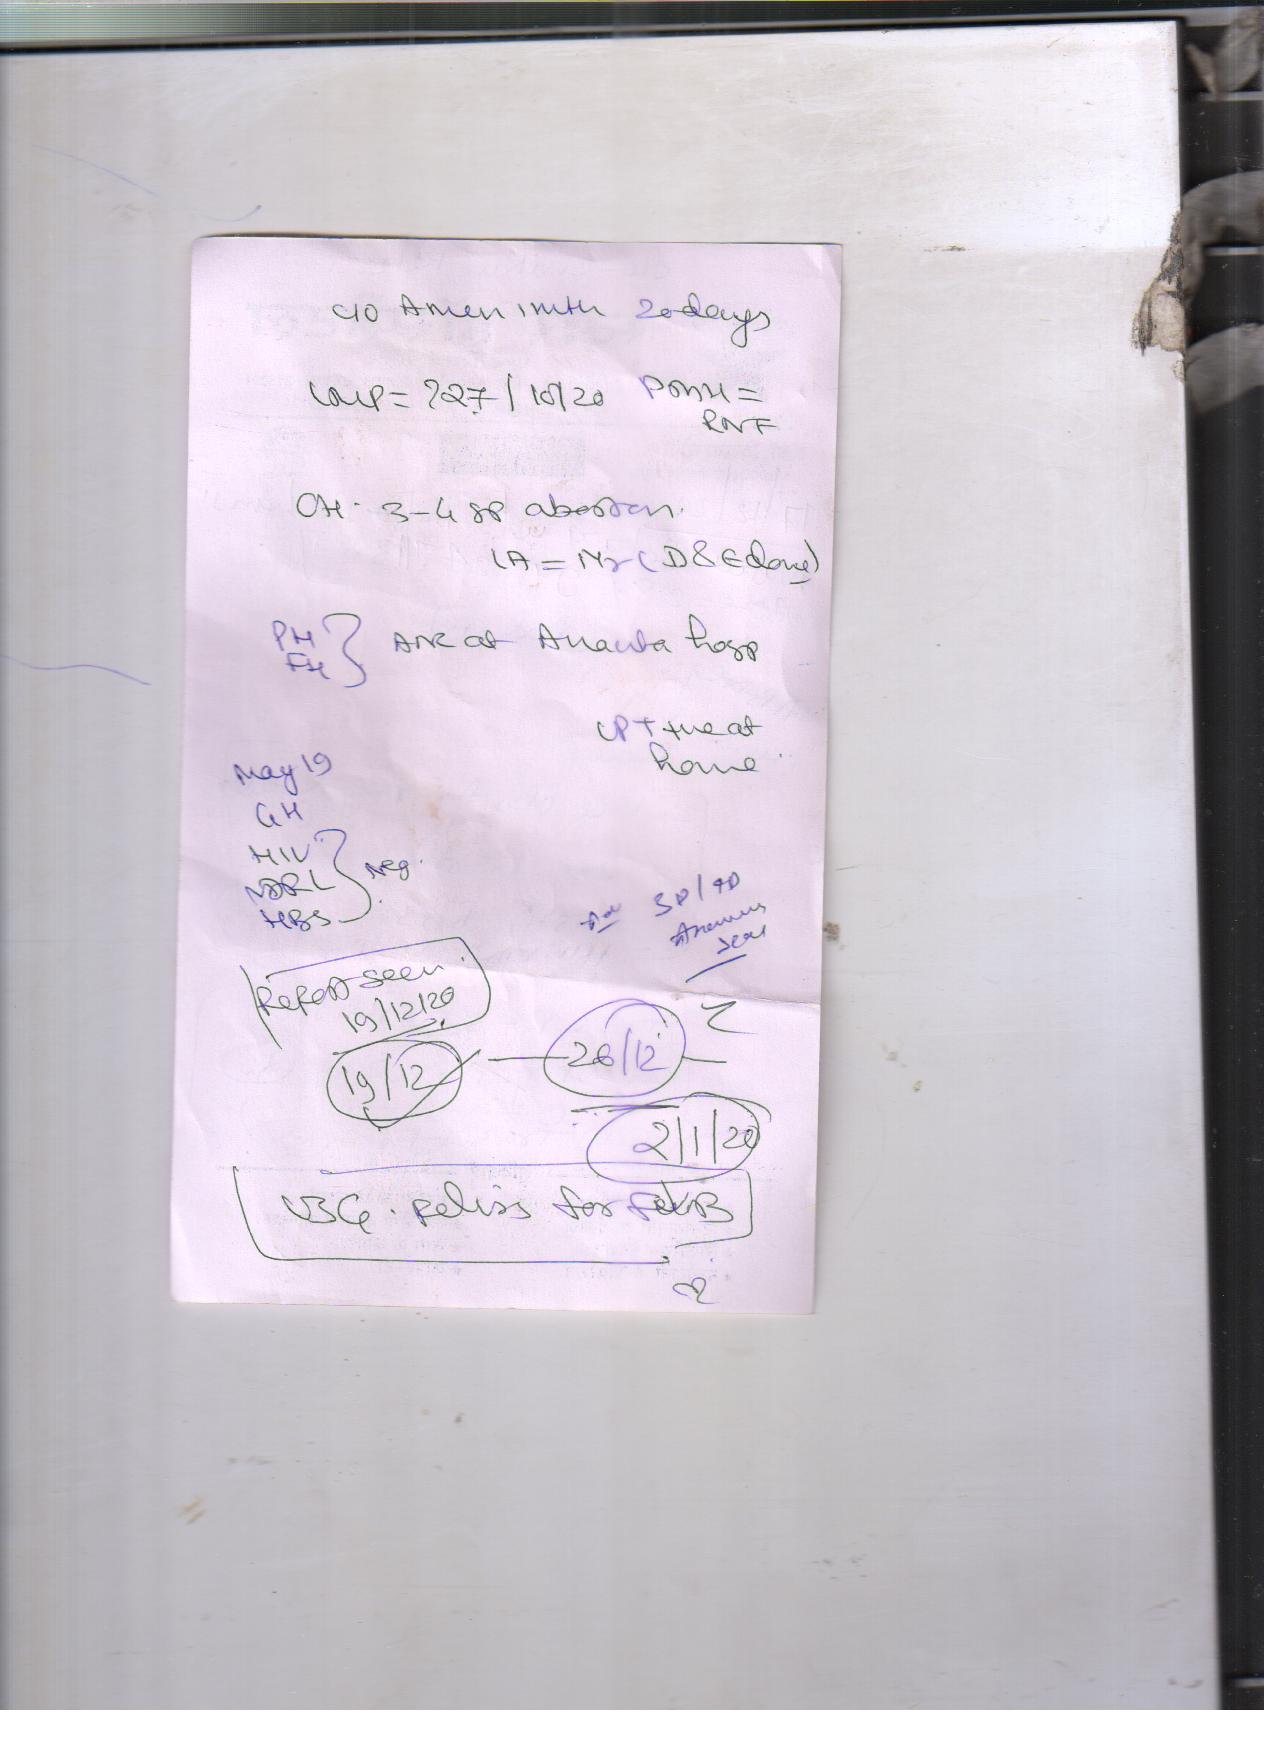 C/O Amen 1 mth 20 days
LMP = ?27/10/20 POMH =
RNF
OH. 3-4 sp abortion.
LA = 1 yr (D&E done)
PH
FH } ANC at Ananta hosp
UPT +ve at
home
May 19
HIV
VDRL } Neg.
HBS
3D/4D
Report seen.
19/12/20
19/12 — 26/12 —
2/1/20
USG. pelvis for